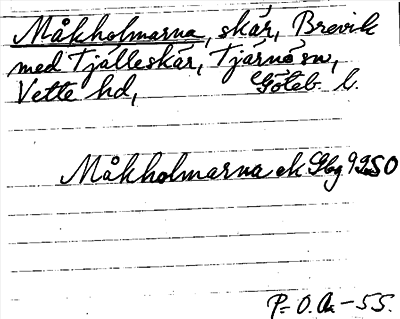 Måkholmarna, skär, Brevik
med Tjälleskär, Tjärnö sn,
Vette hd, Göteb. l.
Måkholmarna ek Gbg 9 SO
P. O. -55.